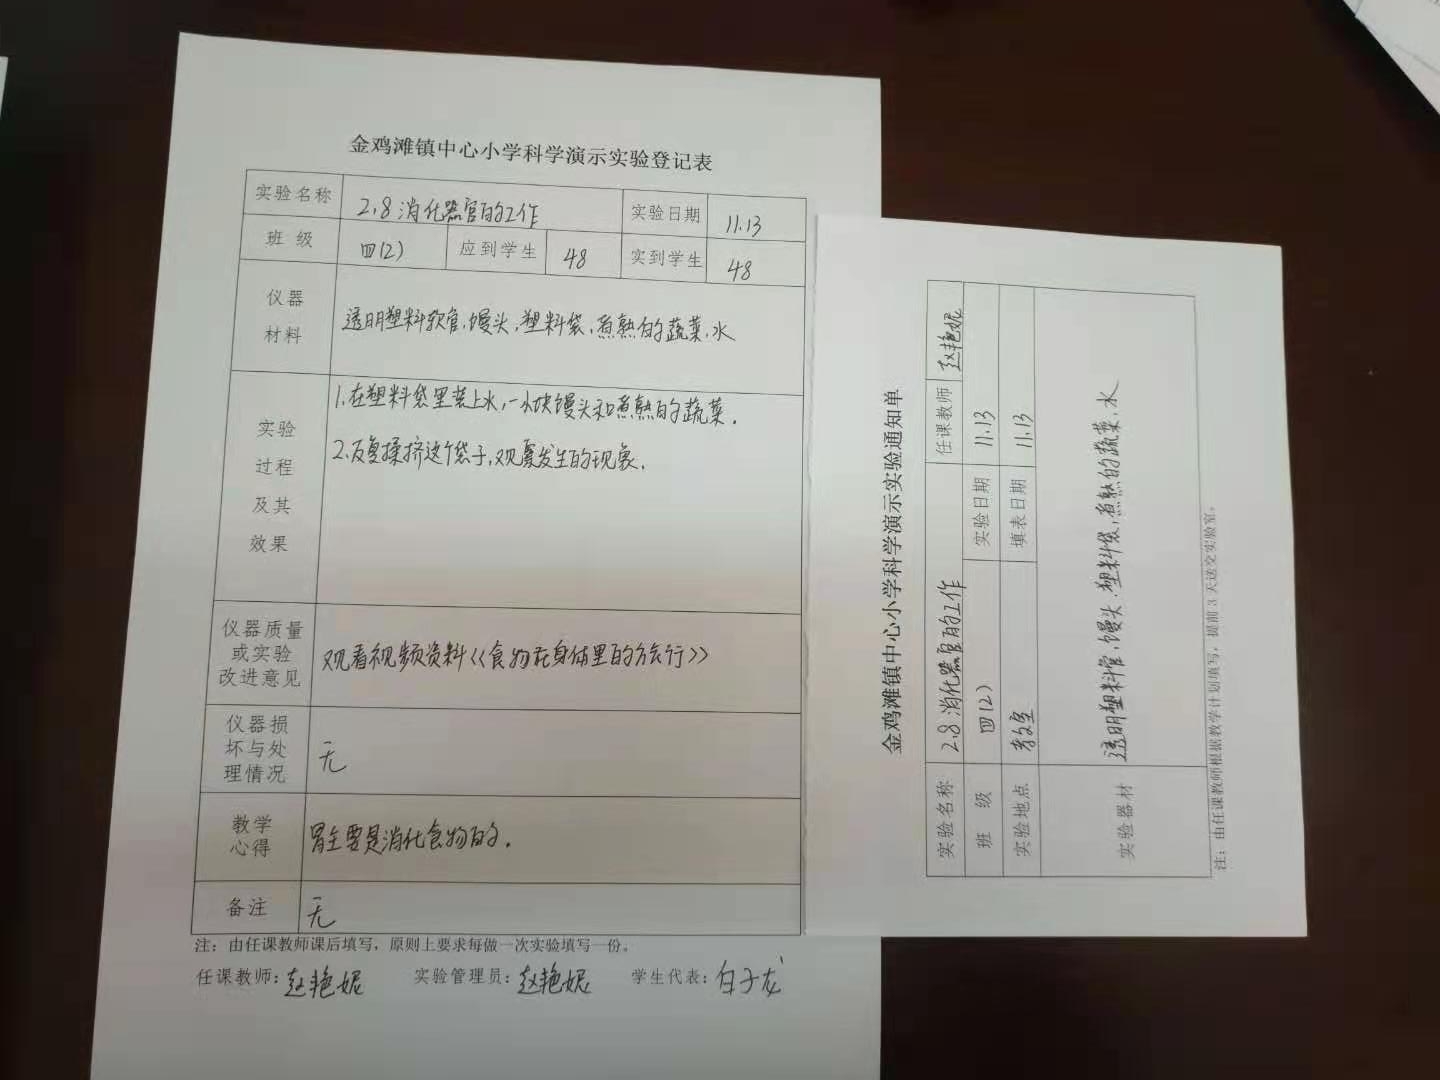 金鸡滩镇中心小学科学演示实验登记表
实验名称 2.8 消化器官的工作 实验日期 11.13
班 级 四(2) 应到学生 48 实到学生 48
仪器
材料
透明塑料软管,馒头,塑料袋,煮熟的蔬菜,水
实验
过程
及其
效果
1.在塑料袋里装上水,一小块馒头和煮熟的蔬菜.
2.反复揉挤这个袋子,观察发生的现象.
仪器质量
或实验
改进意见
观看视频资料《食物在身体里的旅行》
仪器损
坏与处
理情况
无
教学
心得
胃主要是消化食物的.
备注 无
注:由任课教师课后填写,原则上要求每做一次实验填写一份。
任课教师:赵艳妮 实验管理员:赵艳妮 学生代表:白子龙
金鸡滩镇中心小学科学演示实验通知单
实验名称 2.8 消化器官的工作 任课教师 赵艳妮
班 级 四(2) 实验日期 11.13
实验地点 教室 填表日期 11.13
实验器材 透明塑料管,馒头,塑料袋,煮熟的蔬菜,水
注:由任课教师根据教学计划填写,提前 3 天送交实验室。